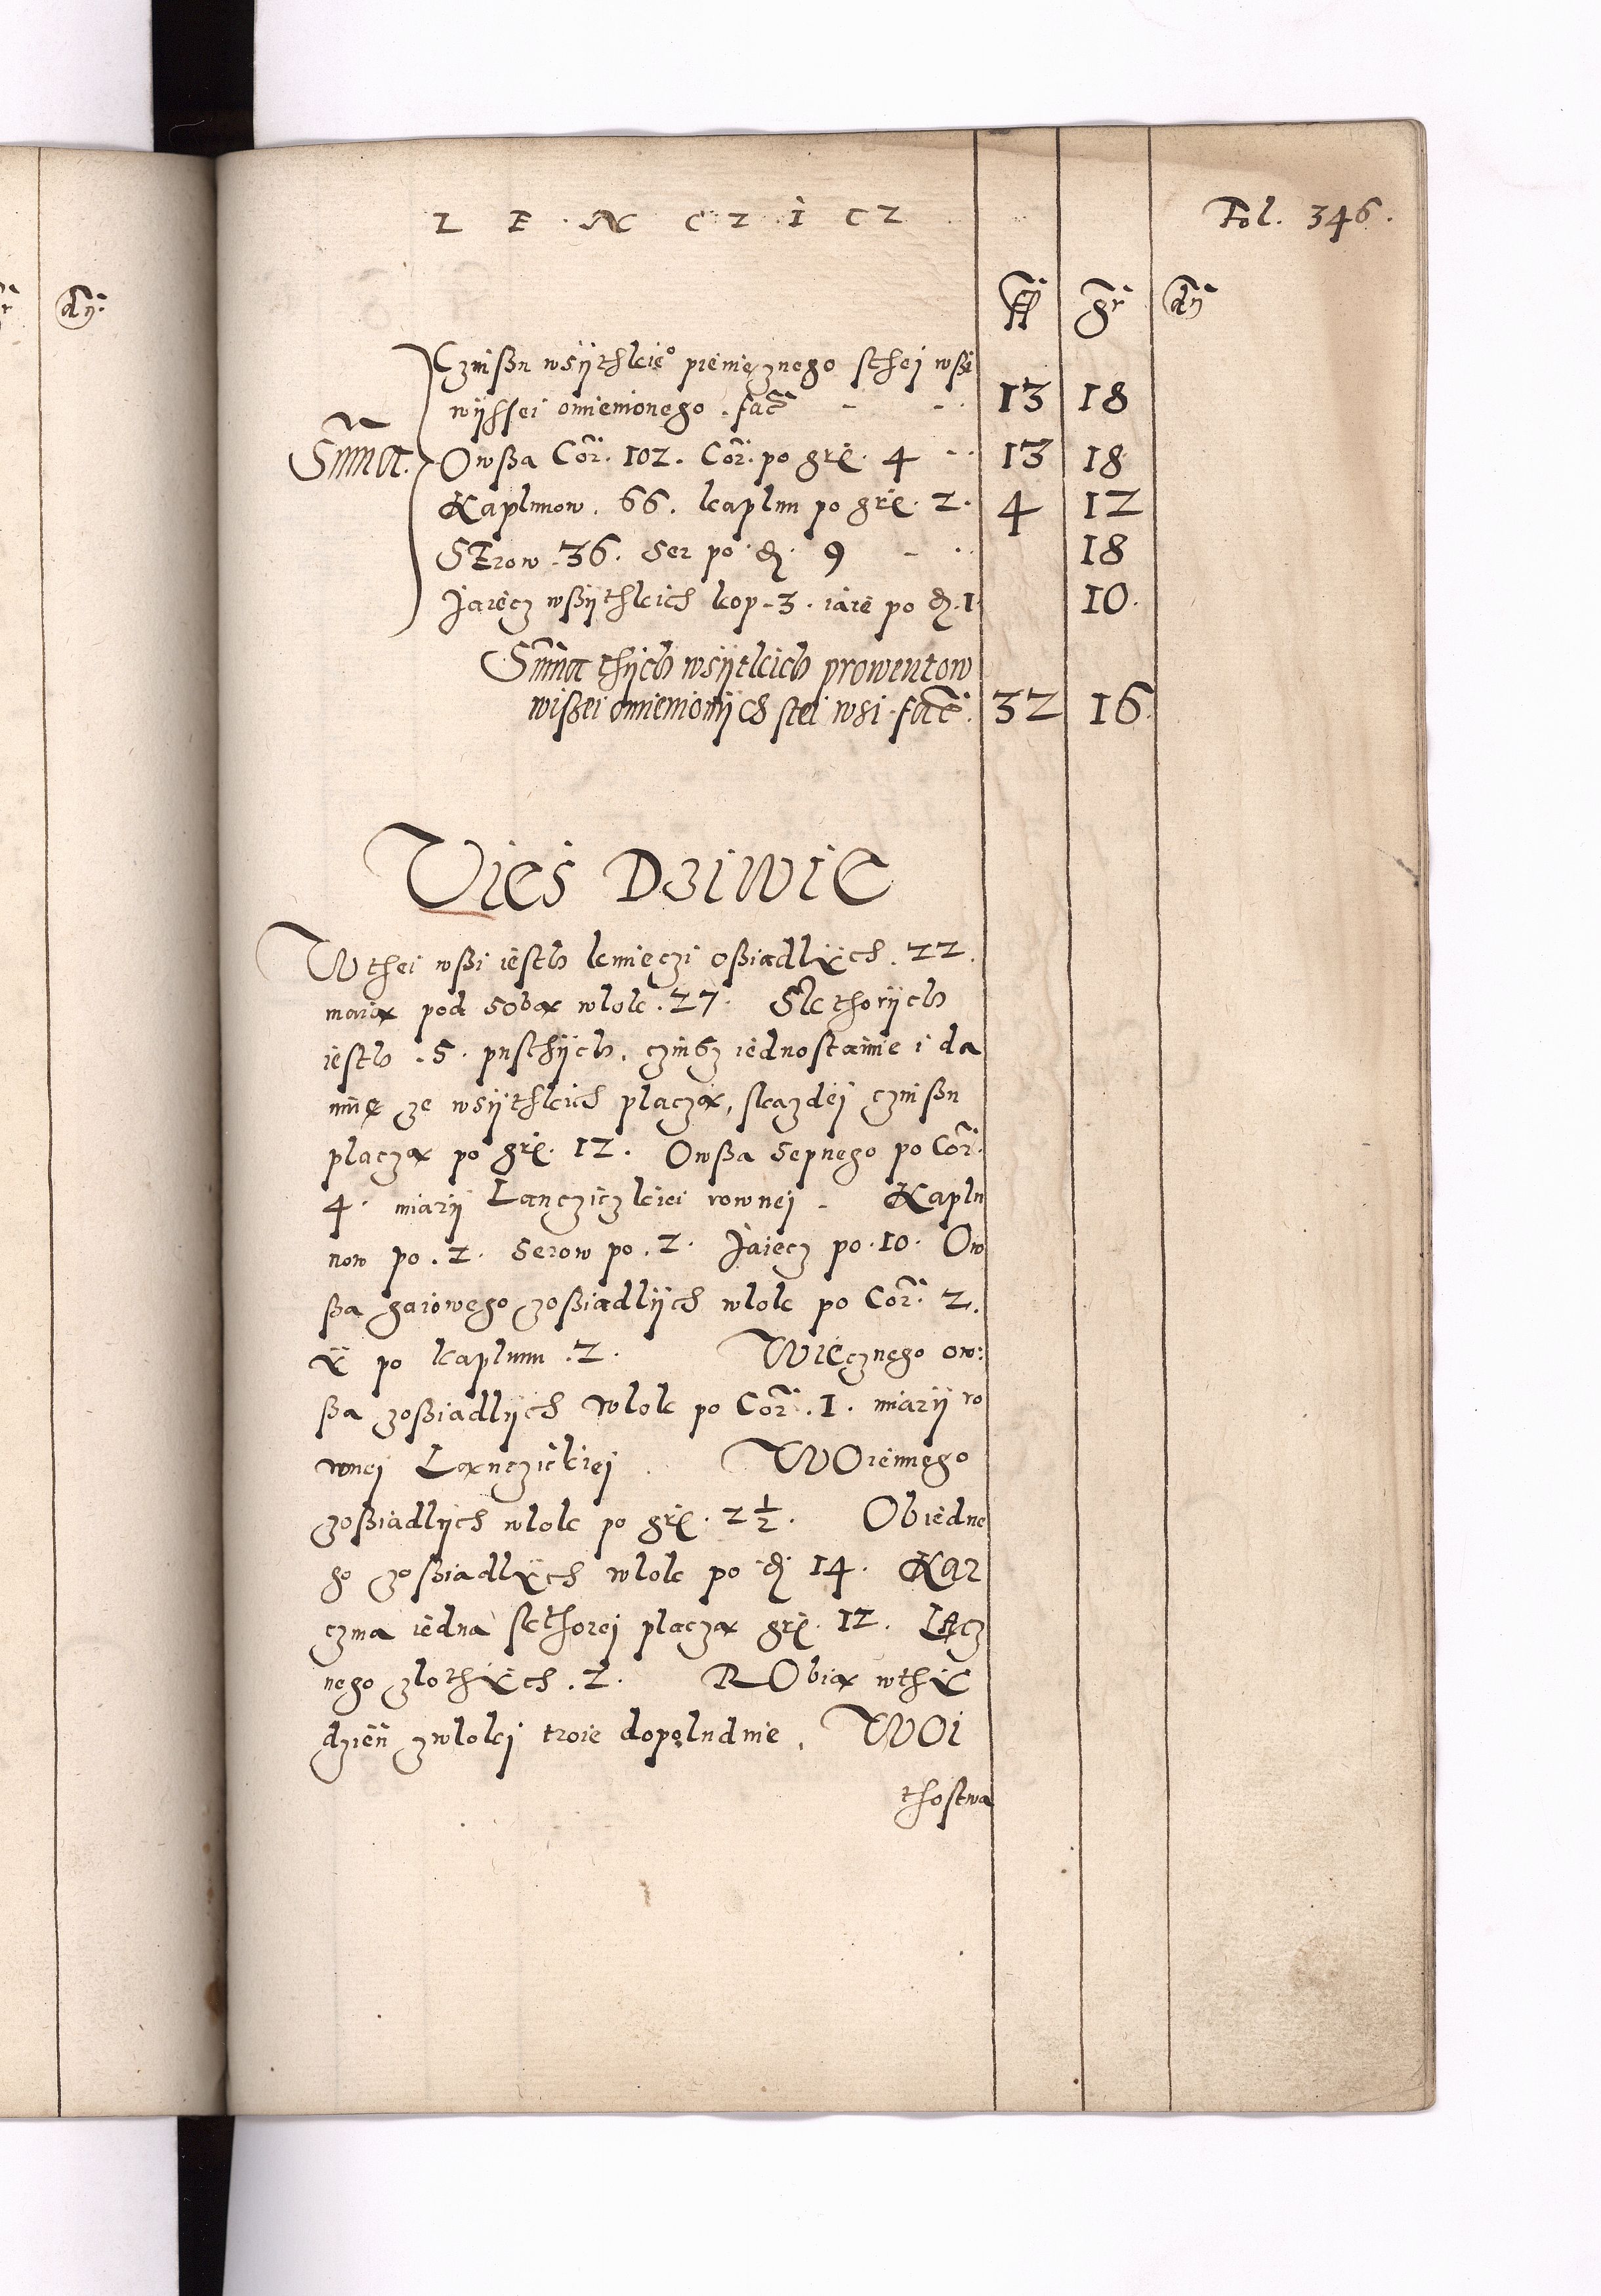 r̃ dŋ̃.
L E N C Z I C Z Fol. 346.
fl gr dŋ̃
Czinßu wsÿthkie° pienięznego sthej wßi
wÿssei omienionego . fac̃ - - 13 18
Sum̃a. Owßa Cor̃. 102. Cor̃. po grę. 4 - - 13 18
Kaplunow . 66. kaplun po grę. 2. 4 12
SErow . 36. ser po đ. 9 - - 18
Jaiecz wßÿthkich kop . 3. iaie po đ. 1 10.
Sum̃a thÿch wsÿtkich prowentow
wißei omienionÿch stei wsi . fac̃. 32 16.
Vies Dziwie
W thei wßi iesth kmieczi oßiadlÿch . 22.
maią pod sobą wlok . 27. Skthorÿch
iesth . 5. pusthÿch. czinsz iednostainie i da
ninę ze wsÿthkich placzą, skazdej czinßu
placzą po grę. 12. Owßa sepnego po Cor̃.
4. miarÿ Lanczÿczkiei rownej - Kaplu
now po . 2. serow po . 2. Jaiecz po . 10. Ow
ßa gaiowego zoßiadlÿch wlok po Cor̃. 2.
ÿ po kaplunu . 2. Wiecznego ow:
ßa zoßiadlÿch wlok po Cor̃ . 1. miarÿ ro
wnej Lanczickiej . WOiennego
zoßiadlÿch wlok po grę. 2 1/2. Obiedne
go zoßiadlÿch wlok po đ 14. Kar
czma iedna skthorej placzą grę. 12. LAcz
nego zlothÿch . 2. RObią wthÿ
dzień zwlokj troie dopoludnie . WOi
thostwa